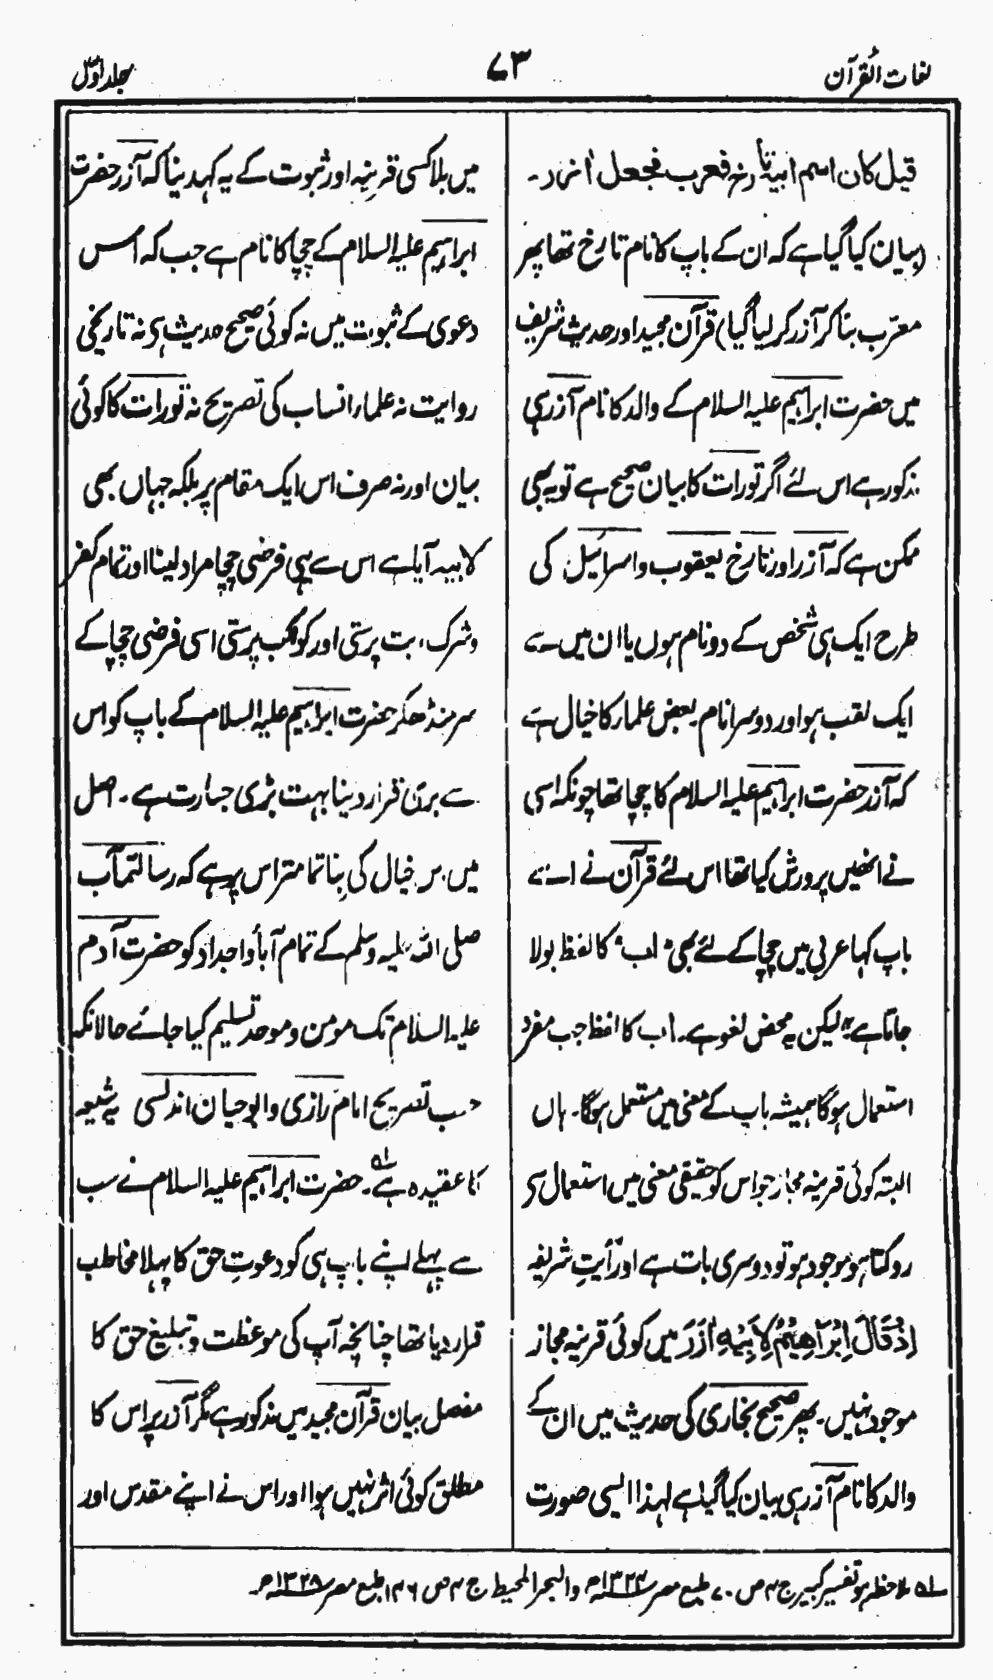 لغات القرآن
۷۳
جلد اوّل
قیل کان اسم ابیہ تارخ فعرب فجعل اٰزر۔
(بیان کیا گیا ہے کہ ان کے باپ کا نام تارخ تھا پھر
معرّب بنا کر آزر کر لیا گیا) قرآن مجید اور حدیث شریف
میں حضرت ابراہیم علیہ السلام کے والد کا نام آزر ہی
مذکور ہے اس لئے اگر تورات کا بیان صحیح ہے تو یہ بھی
ممکن ہے کہ آزر اور تارخ یعقوب و اسرائیل کی
طرح ایک ہی شخص کے دو نام ہوں یا ان میں سے
ایک لقب ہو اور دوسرا نام بعض علماء کا خیال ہے
کہ آزر حضرت ابراہیم علیہ السلام کا چچا تھا چونکہ اسی
نے انھیں پرورش کیا تھا اس لئے قرآن نے اسے
باپ کہا عربی میں چچا کے لئے بھی "اب" کا لفظ بولا
جاتا ہے" لیکن یہ محض لغو ہے۔ اب کا لفظ جب مفرد
استعمال ہوگا ہمیشہ باپ کے معنی میں مستعمل ہوگا۔ ہاں
البتہ کوئی قرینہ مجاز جو اس کو حقیقی معنی میں استعمال سے
روکتا ہو موجود ہو تو دوسری بات ہے اور آیتِ شریفہ
اِذْ قَالَ اِبْرَاهِيْمُ لِاَبِيْهِ اٰزَرَ میں کوئی قرینہ مجاز
موجود نہیں۔ پھر صحیح بخاری کی حدیث میں ان کے
والد کا نام آزر ہی بیان کیا گیا ہے لہذا ایسی صورت
میں بلا کسی قرینہ اور ثبوت کے یہ کہہ دینا کہ آزر حضرت
ابراہیم علیہ السلام کے چچا کا نام ہے جب کہ اس
دعوی کے ثبوت میں نہ کوئی صحیح حدیث ہی نہ تاریخی
روایت نہ علماء انساب کی تصریح نہ تورات کا کوئی
بیان اور نہ صرف اس ایک مقام پر بلکہ جہاں بھی
لابیہ آیا ہے اس سے یہی فرضی چچا مراد لینا اور تمام کفر
و شرک، بت پرستی اور کوکب پرستی اسی فرضی چچا کے
سر منڈھ کر حضرت ابراہیم علیہ السلام کے باپ کو اس
سے بری قرار دینا بہت بڑی جسارت ہے۔ اصل
میں اس خیال کی بِنا تمامتر اس پر ہے کہ رسالتمآب
صلی اللہ علیہ وسلم کے تمام آباؤ اجداد کو حضرت آدم
علیہ السلام تک مومن و موحد تسلیم کیا جائے حالانکہ
حسب تصریح امام رازی و ابو حیان اندلسی یہ شیعہ
کا عقیدہ ہے۔ؔ۱ حضرت ابراہیم علیہ السلام نے سب
سے پہلے اپنے باپ ہی کو دعوتِ حق کا پہلا مخاطب
قرار دیا تھا چنانچہ آپ کی موعظت و تبلیغ حق کا
مفصل بیان قرآن مجید میں مذکور ہے مگر آزر پر اس کا
مطلق کوئی اثر نہیں ہوا اور اس نے اپنے مقدس اور
ؔ۱ ملاحظہ ہو تفسیر کبیر ج ۴ ص ۷۰ طبع مصر ۱۳۲۴ھ والبحر المحیط ج ۴ ص ۱۶۴ طبع مصر ۱۳۲۸ھ۔